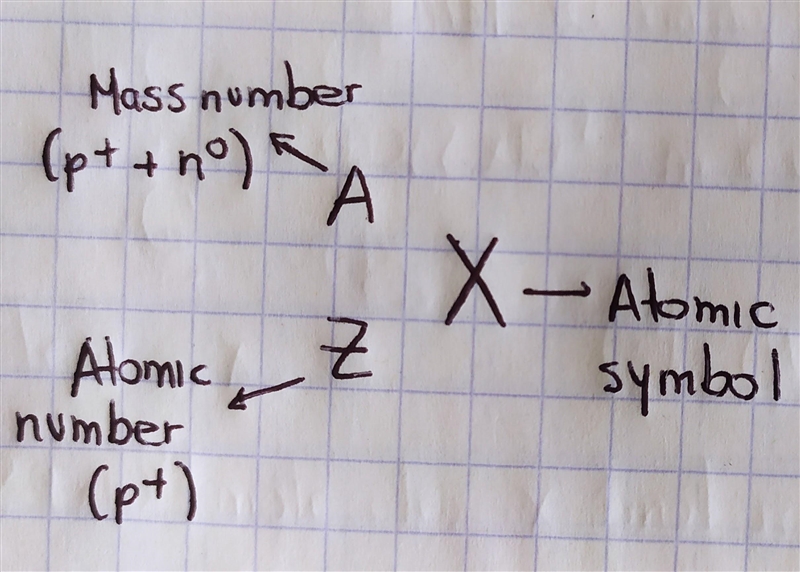 Mass number
(p+ + n⁰)
A
X → Atomic
symbol
Z
Atomic
number
(p+)